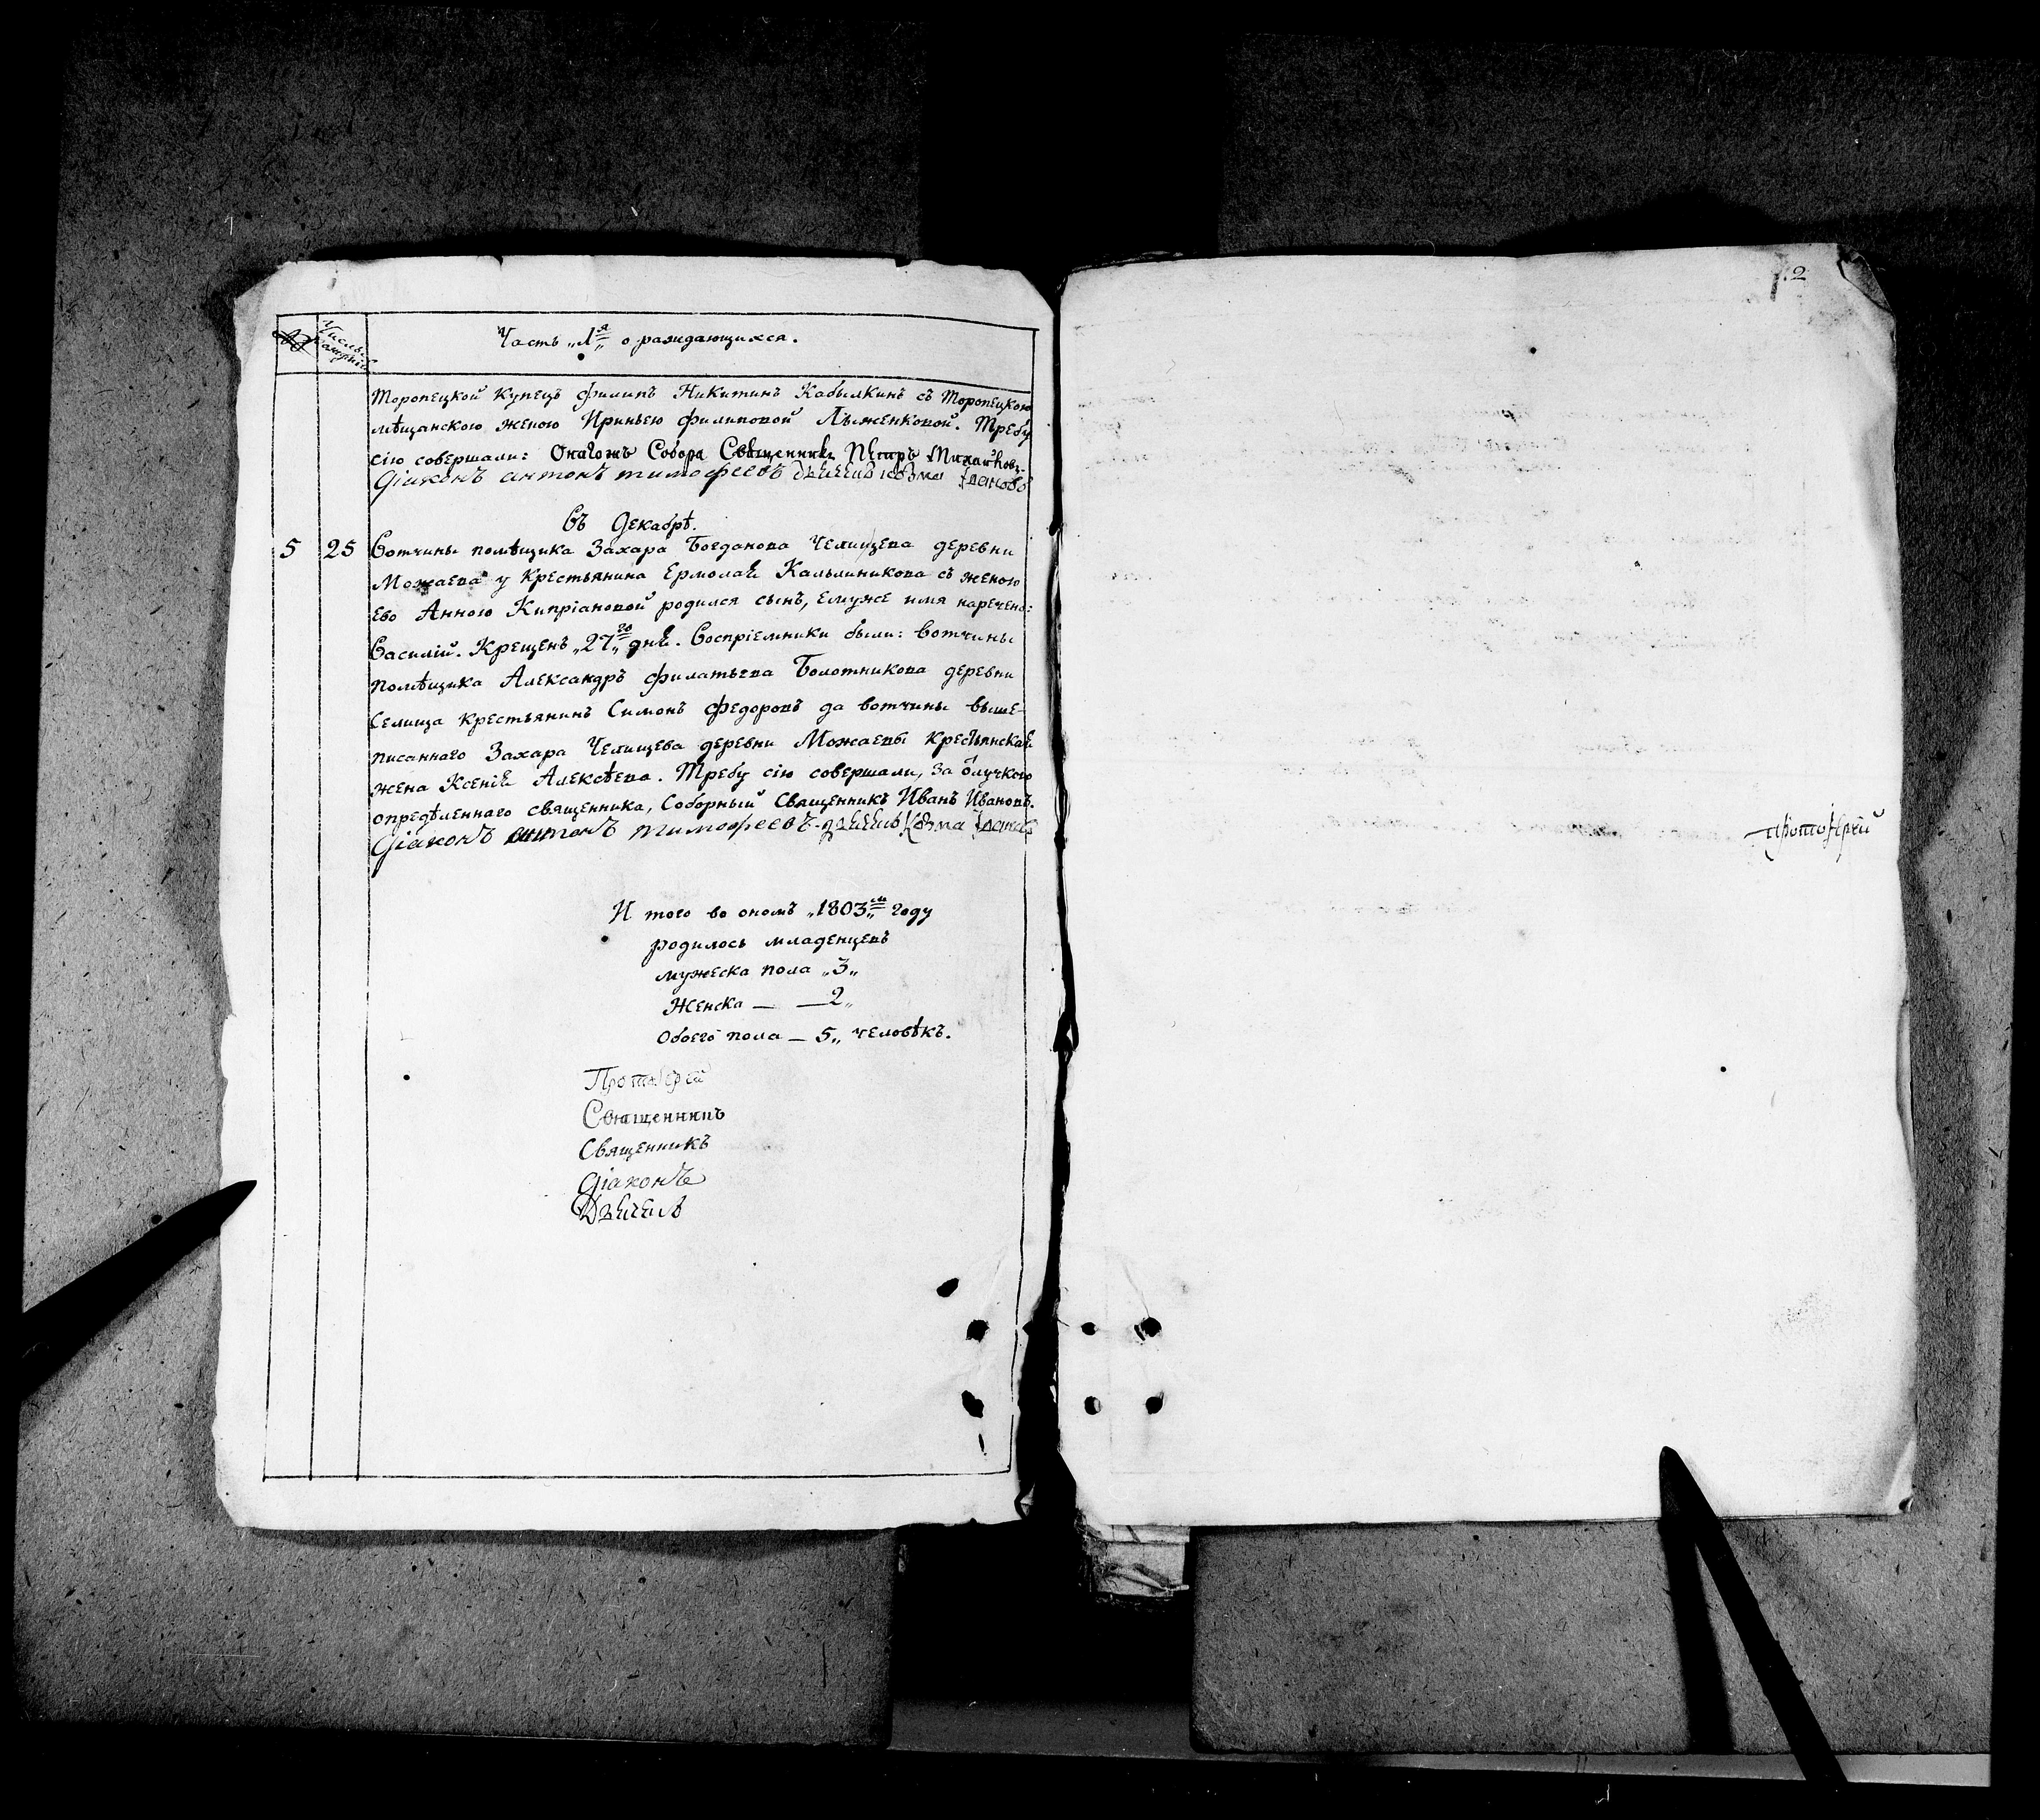 Часть „1я„ о раждающихся.
Торопецкой Купецъ Филипъ Никитинъ Кабылкинъ съ Торопецкою
мѣщанскою женою Ириньею Филиповой Лыженковой. Требу
сію совершали: Онагожъ Собора Священникъ Петръ Михайловъ
Діаконъ антонъ тимофеевъ дьячекъ козма Ивановъ
Въ Декабрѣ.
5 25 Вотчины помѣщика Захара Богданова Челищева деревни
Можаева у Крестьянина Ермолая Кальлиникова съ женою
ево Анною Кипріановой родился сынъ, емуже имя наречено:
Василій. Крещенъ „27го„ дня. Воспріемники были: вотчины
помѣщика Александръ Филатьева Болотникова деревни
Селища крестьянинъ Симонъ Федоровъ да вотчины выше-
писаннаго Захара Челищева деревни Можаевы крестьянская
жена Ксенія Алексѣева. Требу сію совершали, за отлучкою
опредѣленнаго священника, Соборный Священникъ Иванъ Ивановъ.
Діаконъ антонъ тимофеевъ дьячекъ Козма Ивановъ
И того во ономъ „1803м„ году
родилось младенцевъ
мужеска пола „3„
Женска — — 2„
Обоего пола — 5„ человѣкъ.
Протоіерей
Священникъ
Священникъ
Діаконъ
Дьячекъ
2
протоіерей